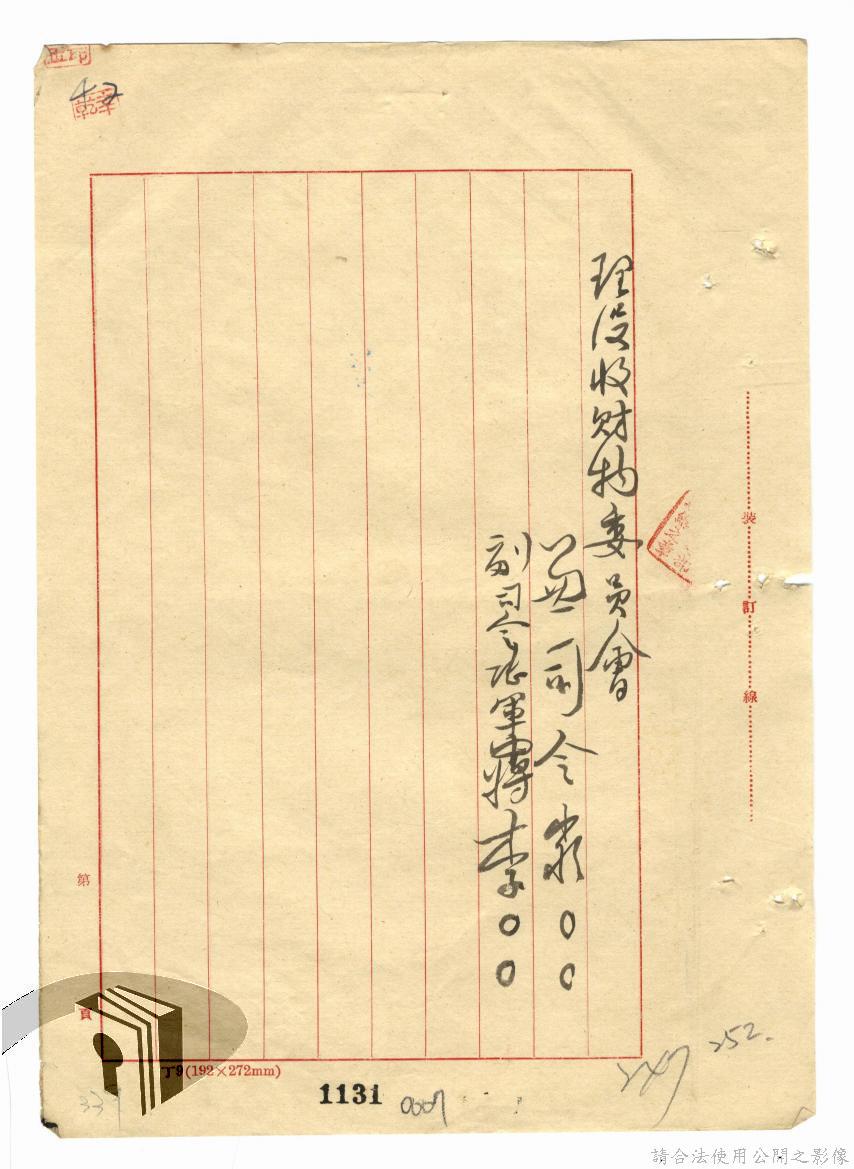 理沒收財物委員會
兼司令嚴〇〇
副司令陸軍中將李〇〇
裝訂線
第
頁
丁9(192×272mm)
1131
252.
247
請合法使用公開之影像